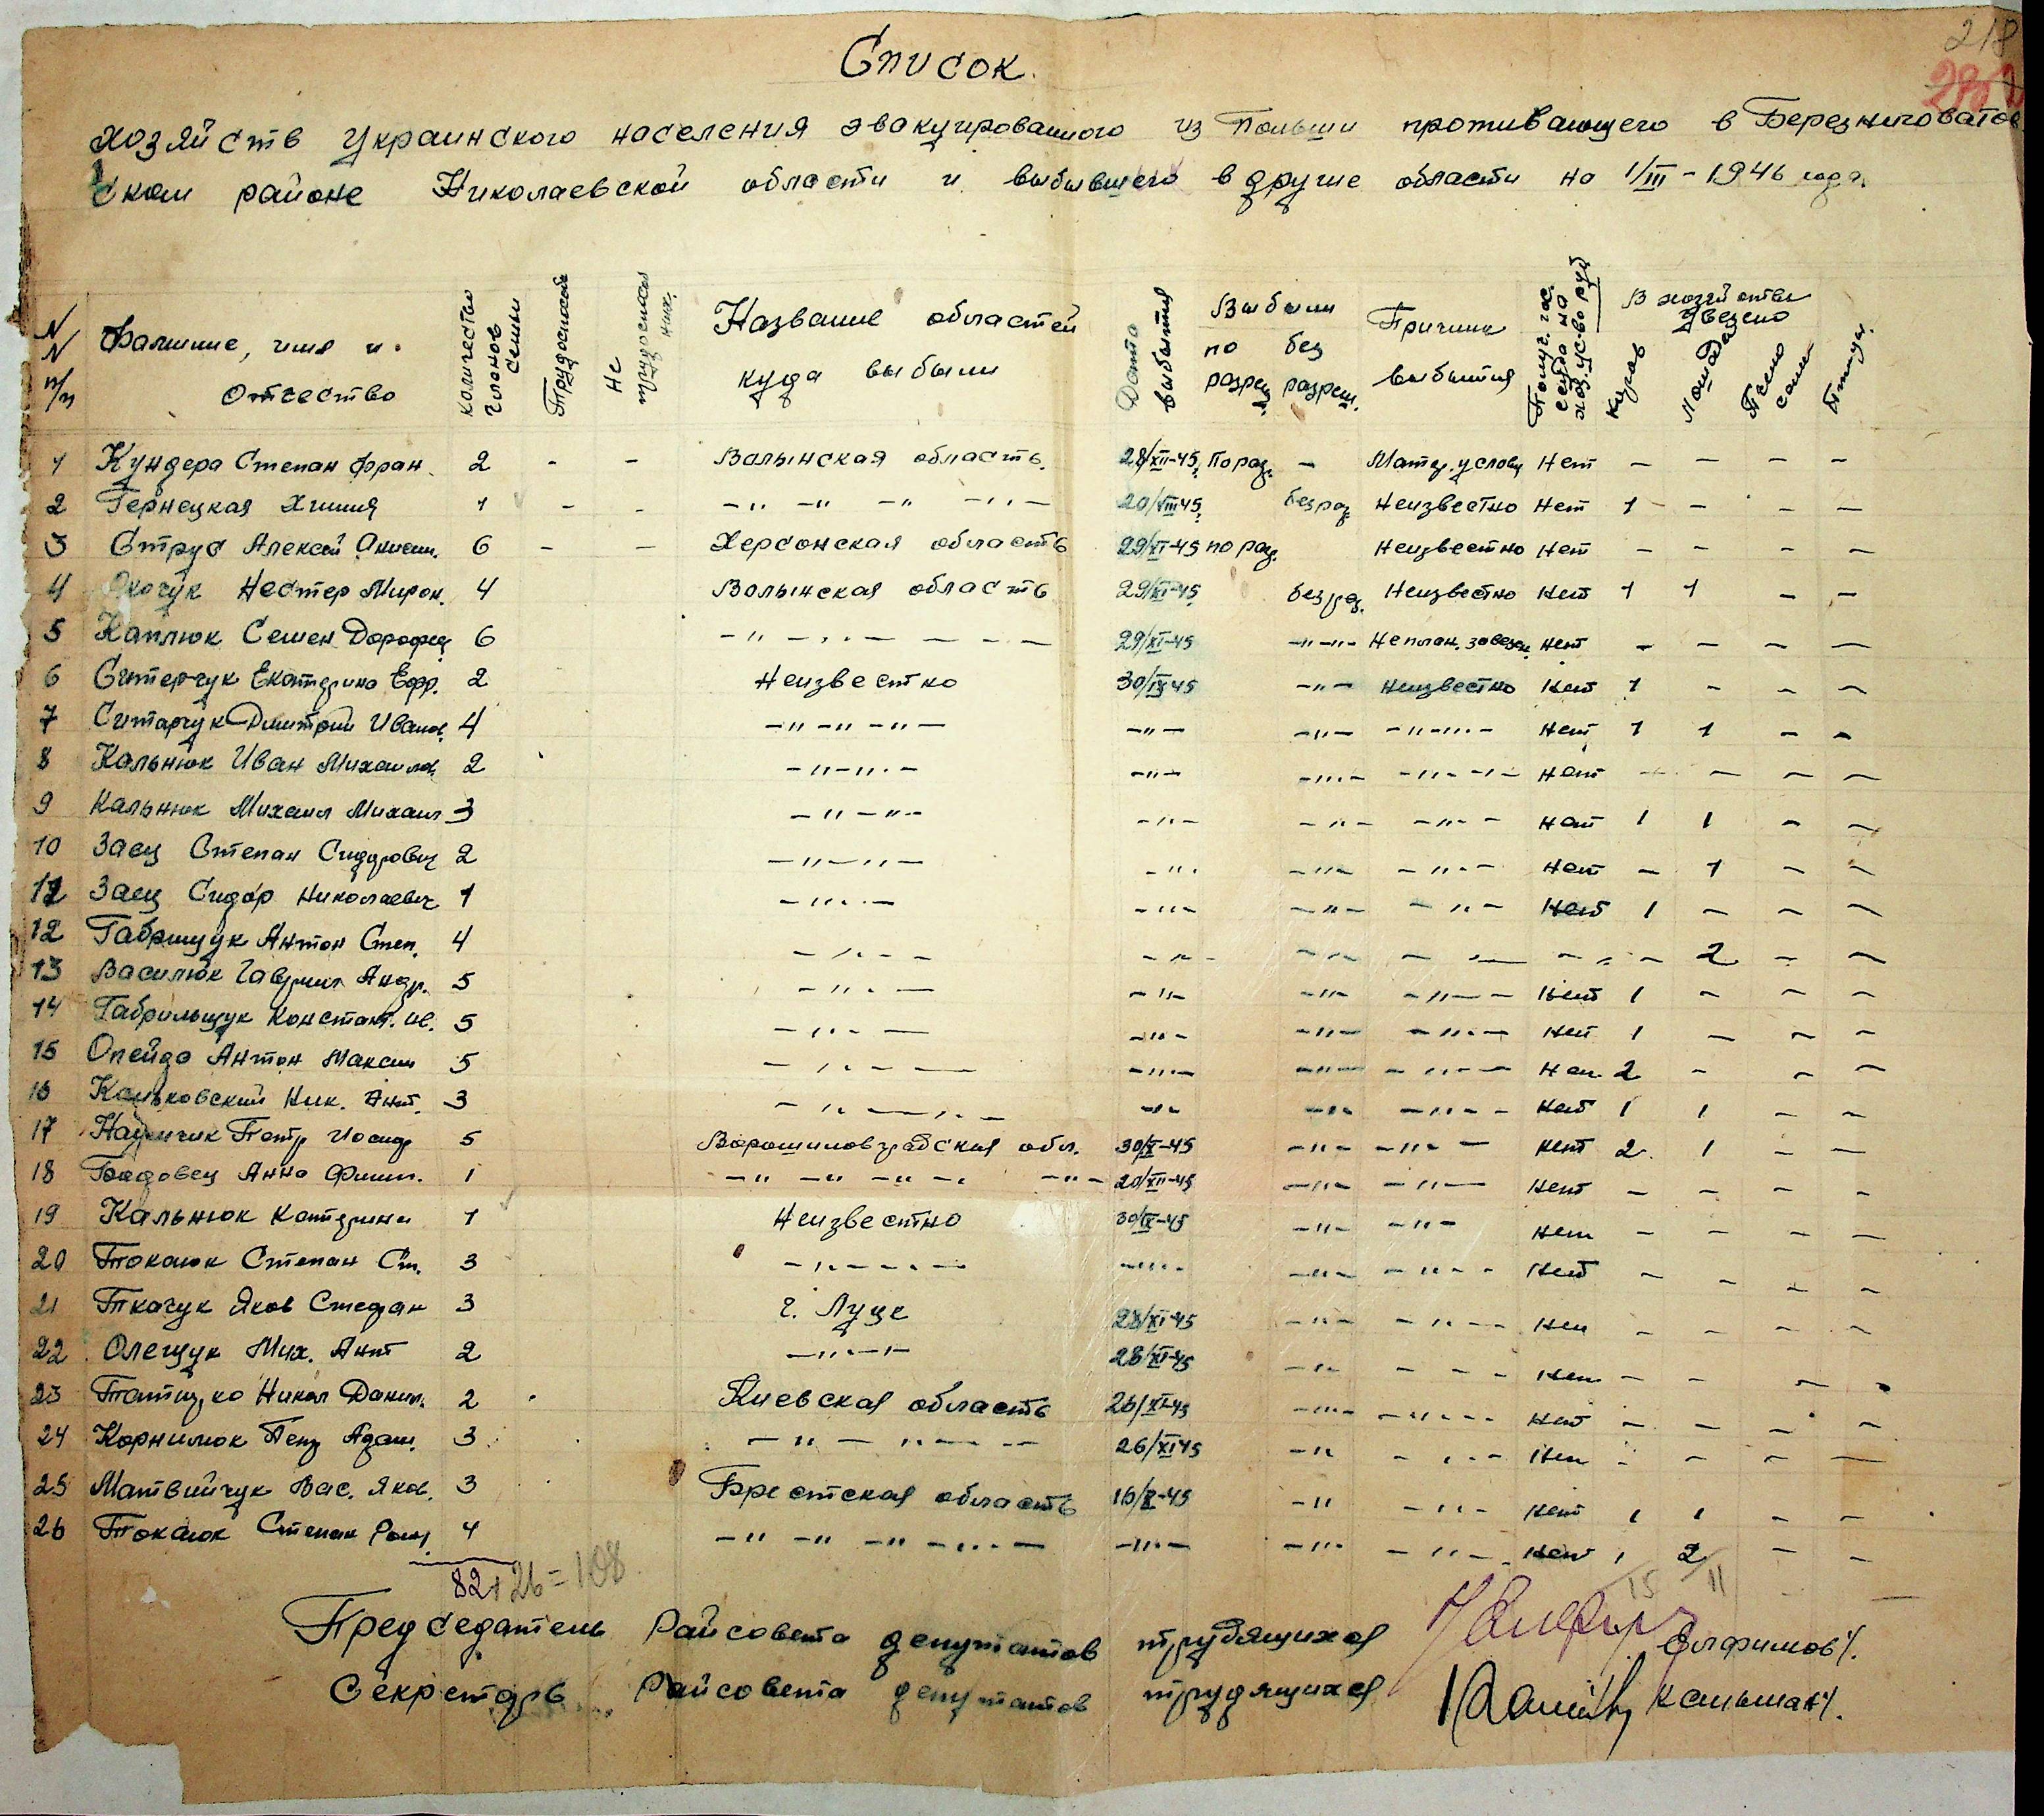 218
Список
хозяйств украинского населения эвакуированного из Польши проживающего в Березнеговатов
ском районе Николаевской области и выбывшего в другие области на 1/III-1946 года.
N N п/п Фамилие, имя и Отчество Количество членов семьи Трудоспособ Не трудоспособ них. Название областей куда выбыли Дата выбытия Выбыли по разреш. без разреш. Причина выбытия В хозяйстве увезено Коров Лошадей Птицы
1 Кундера Степан Фран. 2 - - Волынская область. 28/XII-45 По раз. - Матер. услов Нет - - - -
2 Гернецкая Химия 1 - - -"- -"- -"- -"- 20/VIII 45 без раз Неизвестно Нет 1 - - -
3 Струс Алексей Анисим. 6 - - Херсонская область 29/XI-45 по раз. Неизвестно Нет - - - -
4 Нестер Мирон. 4 Волынская область 29/XI-45 без раз. Неизвестно Нет 1 1 - -
5 Каплюк Семен Дорофей 6 -"- -"- - - - 29/XI-45 -"-"- Не план. завезен. Нет - - - -
6 Ситерчук Екатерина Ефр. 2 Неизвестно 30/IX 45 -"- Неизвестно Нет 1 - - -
7 Ситарчук Дмитрий Иванов. 4 -"-"-"- -"- -"- -"-"- Нет 1 1 - -
8 Кальнюк Иван Михайлов 2 -"-"- -"- -"- -"-"- Нет - - - -
9 Кальнюк Михаил Михаил 3 -"-"- -"- -"- -"- Нет 1 1 - -
10 Заец Степан Сидорович 2 -"-"- -"- -"- -"- Нет - 1 - -
11 Заец Сидор Николаевич 1 -"- -"- -"- -"- Нет 1 - - -
12 Габрищук Антон Степ. 4 -"- -"- -"- - - -"- 2 - -
13 Василюк Гаврил Андр. 5 -"- -"- -"- -"- Нет 1 - - -
14 Габрильщук Констант. Ив. 5 -"- -"- -"- -"- Нет 1 - - -
15 Опейда Антон Максим 5 -"- -"- -"- -"- Нет 2 - - -
16 Ник. Ант. 3 -"-"- -"- -"- -"- Нет 1 1 - -
17 Петр Иосиф 5 Ворошиловградская обл. 30/X-45 -"- -"- Нет 2 1 - -
18 Анна Филип. 1 -"- -"- -"- -"- 20/XII-45 -"- -"- Нет - - - -
19 Кальнюк Катерина 1 Неизвестно 30/IX-45 -"- -"- Нет - - - -
20 Токаюк Степан Ст. 3 -"- -"- -"- -"- Нет - - - -
21 Ткачук Яков Стефан 3 г. Луцк 28/XI-45 -"- -"- Нет - - - -
22 Олещук Мих. Ант 2 -"-"- 28/XI-45 -"- - - - Нет - - - -
23 Никол Данил. 2 Киевская область 26/XI-45 -"- -"- Нет - - - -
24 Корнилюк Петр Адам. 3 -"- -"- 26/XI 45 -"- -"- Нет - - - -
25 Матвийчук Вас. Яков. 3 Брестская область 16/X-45 -"- -"- Нет 1 1 - -
26 Токаюк Степан Ром. 4 -"- -"- -"- -"- -"- -"- -"- Нет 1 2 - -
82+26=108 15 11
Председатель Райсовета депутатов трудящихся /Ялфимов/.
Секретарь Райсовета депутатов трудящихся /Кальман/.